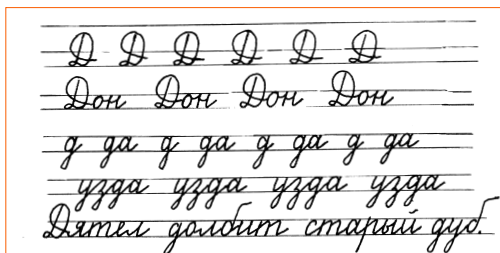 Д Д Д Д Д Д
Дон Дон Дон Дон
д да д да д да д да
узда узда узда узда
Дятел долбит старый дуб.